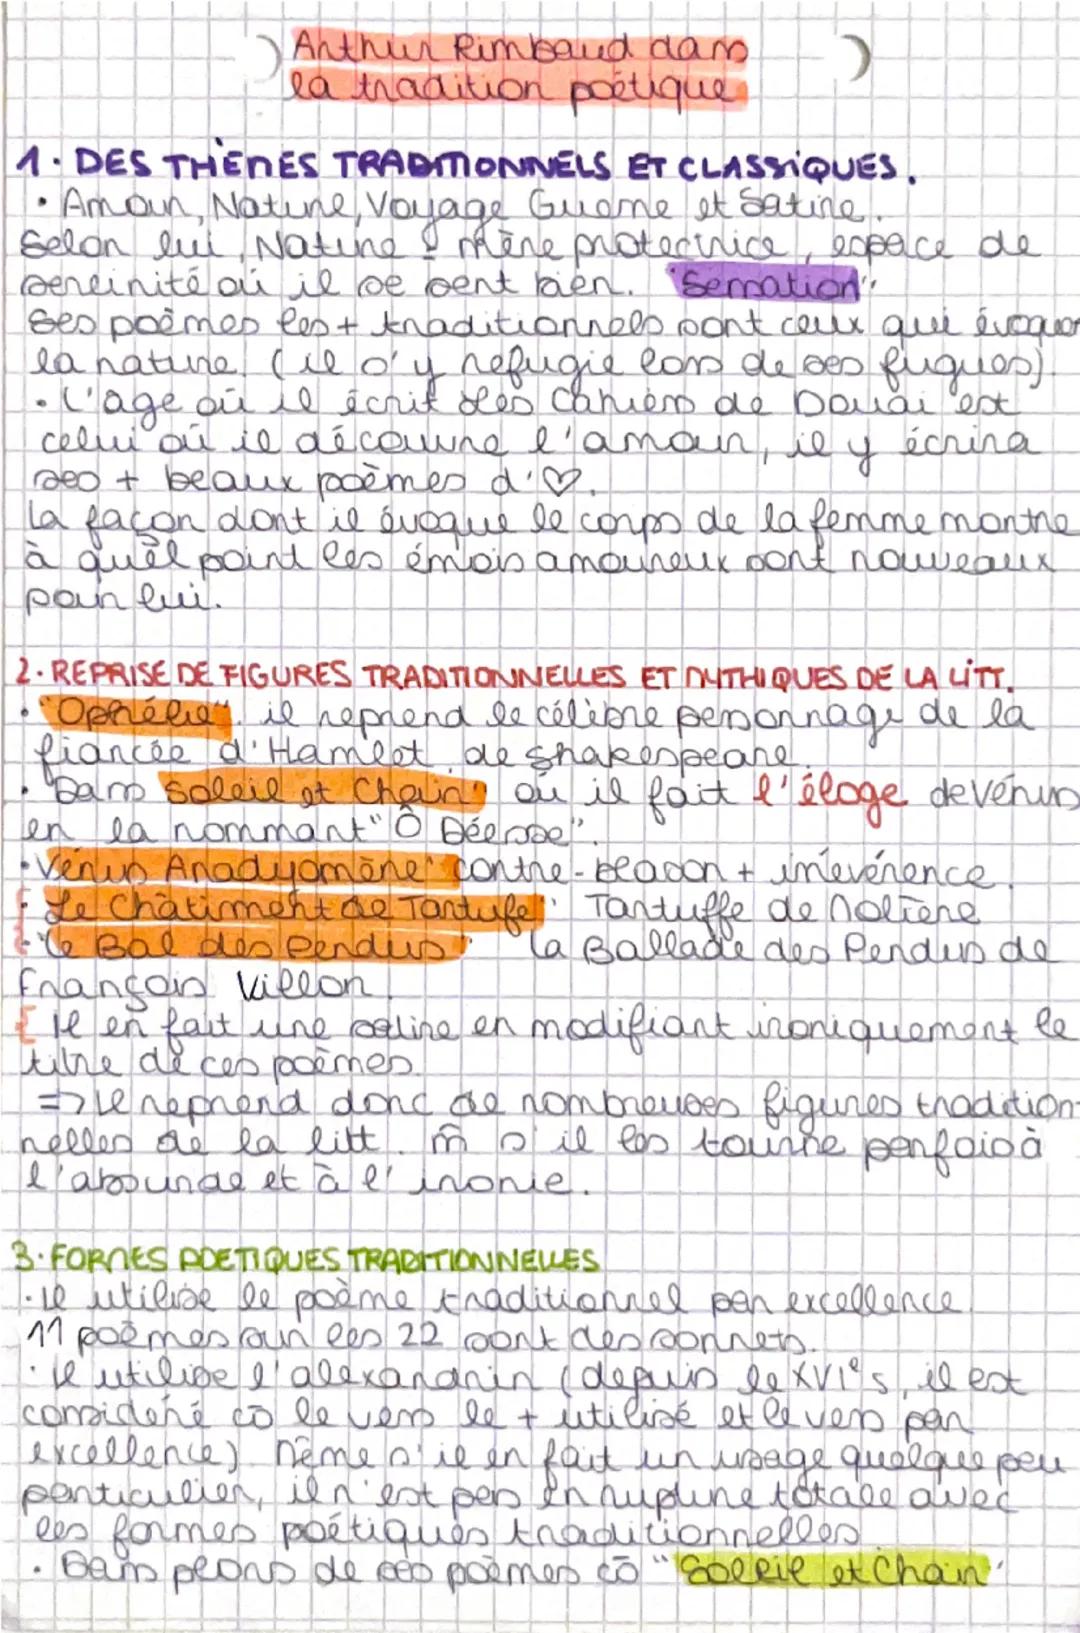 Arthur Rimbaud dans
la tradition poétique
1. DES THÈMES TRADITIONNELS ET CLASSIQUES.
• Amour, Nature, Voyage Guerre et Satire.
Selon lui, Nature = mère protectrice, espace de
sereinité où il se sent bien. "Sensation".
Ses poèmes les + traditionnels sont ceux qui évoquent
la nature. (il s'y refugie lors de ses fugues).
• L'age où il écrit les Cahiers de Douai est
celui où il découvre l'amour, il y écrira
ses + beaux poèmes d'♡.
La façon dont il évoque le corps de la femme montre
à quel point les émois amoureux sont nouveaux
pour lui.
2. REPRISE DE FIGURES TRADITIONNELLES ET MYTHIQUES DE LA LITT.
• "Ophélie", il reprend le célèbre personnage de la
fiancée d'Hamlet, de Shakespeare.
• Dans "Soleil et Chair" où il fait l'éloge de Vénus
en la nommant "Ô Déesse".
• "Vénus Anadyomène" contre-blason + irrévérence.
• "Le Châtiment de Tartufe" : Tartuffe de Molière
• "Le Bal des Pendus" : La Ballade des Pendus de
François Villon.
{ Il en fait une satire en modifiant ironiquement le
titre de ces poèmes.
=> Il reprend donc de nombreuses figures tradition-
nelles de la litt. m̂ s'il les tourne parfois à
l'absurde et à l'ironie.
3. FORMES POETIQUES TRADITIONNELLES
• Il utilise le poème traditionnel par excellence.
11 poèmes sur les 22 sont des sonnets.
• Il utilise l'alexandrin (depuis le XVIe s, il est
considéré cō le vers le + utilisé et le vers par
excellence). Même s'il en fait un usage quelque peu
particulier, il n'est pas en rupture totale avec
les formes poétiques traditionnelles.
• Dans plsrs de ses poèmes cō "Soleil et Chair"